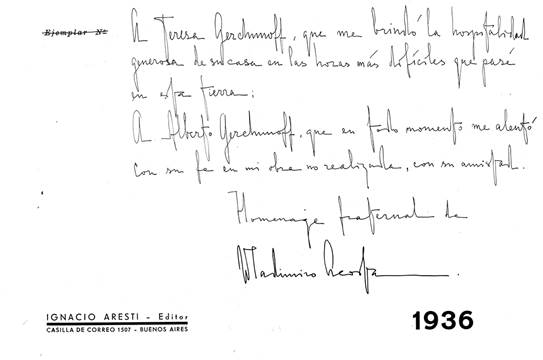 Ejemplar Nº
A Teresa Gerchunoff, que me brindó la hospitalidad
generosa de su casa en las horas más difíciles que pasé
en esta tierra;
A Alberto Gerchunoff, que en todo momento me alentó
con su fe en mi obra no realizada, con su amistad.
Homenage fraternal de
Wladimiro Acosta.
IGNACIO ARESTI - Editor
CASILLA DE CORREO 1507 - BUENOS AIRES
1936